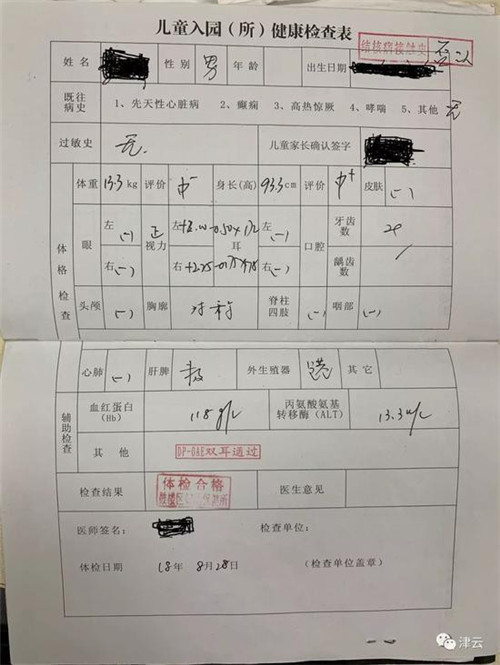 儿童入园（所）健康检查表
结核病接触史 否认
姓名 性别 男 年龄 出生日期
既往病史 1、先天性心脏病 2、癫痫 3、高热惊厥 4、哮喘 5、其他 无
过敏史 无. 儿童家长确认签字
体格检查
体重 13.3kg 评价 中- 身长(高) 93.5cm 评价 中+ 皮肤 (-)
眼 左 (-) 视力 正 左 耳 左 (-) 口腔 牙齿数
右 (-) 右 右 (-) 龋齿数
头颅 (-) 胸廓 对称 脊柱四肢 (-) 咽部 (-)
心肺 (-) 肝脾 外生殖器 其它
辅助检查
血红蛋白（Hb） 118g/L 丙氨酸氨基转移酶（ALT） 13.3u/L
其他 DP-OAE双耳通过
检查结果 体检合格 医生意见
医师签名： 检查单位：
体检日期 18年 8月28日 （检查单位盖章）
津云